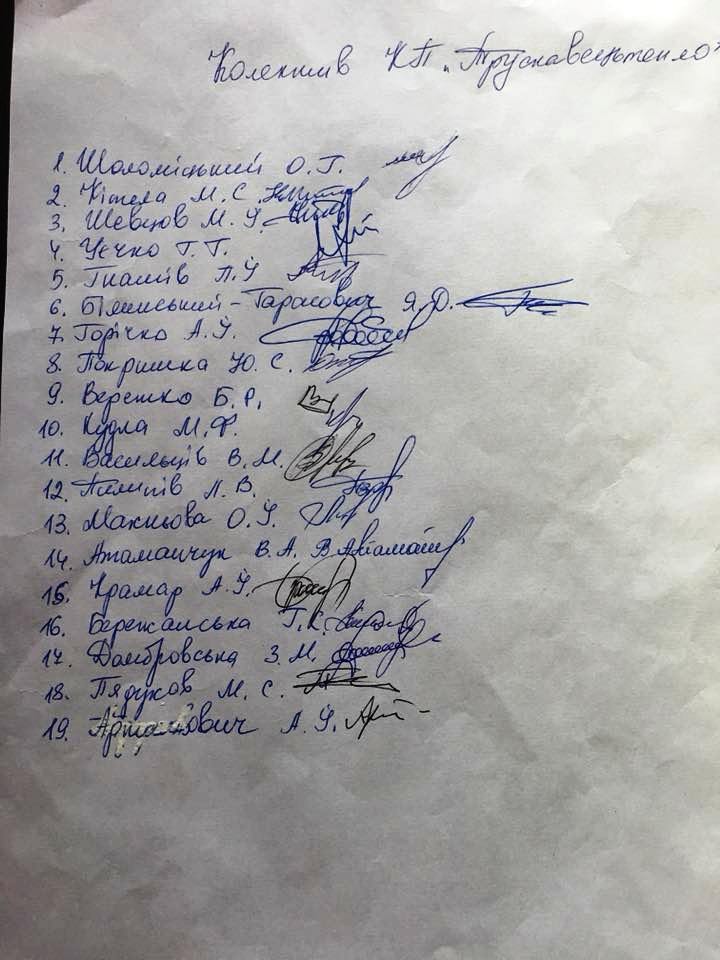 Колектив КП „Трускавецьтепло"
1. Шоломіцький О. Г.
2. Кітела М. С.
3. Шевцов М. Й.
4. Чечко Т. Т.
5. Гнатів П. Й
6. Білинський-Тарасович Я. О.
7. Горічко А. Й.
8. Покришка Ю. С.
9. Верешко Б. Р.
10. Кудла М. Ф.
11. Васильців В. М.
12. Пилипів Л. В.
13. О. Й.
14. Атаманчук В. А. В Атаман
15. Крамар А. Й.
16. Бережанська Г. К.
17. Домбровська З. М.
18. Пядухов М. С.
19. А. Й.